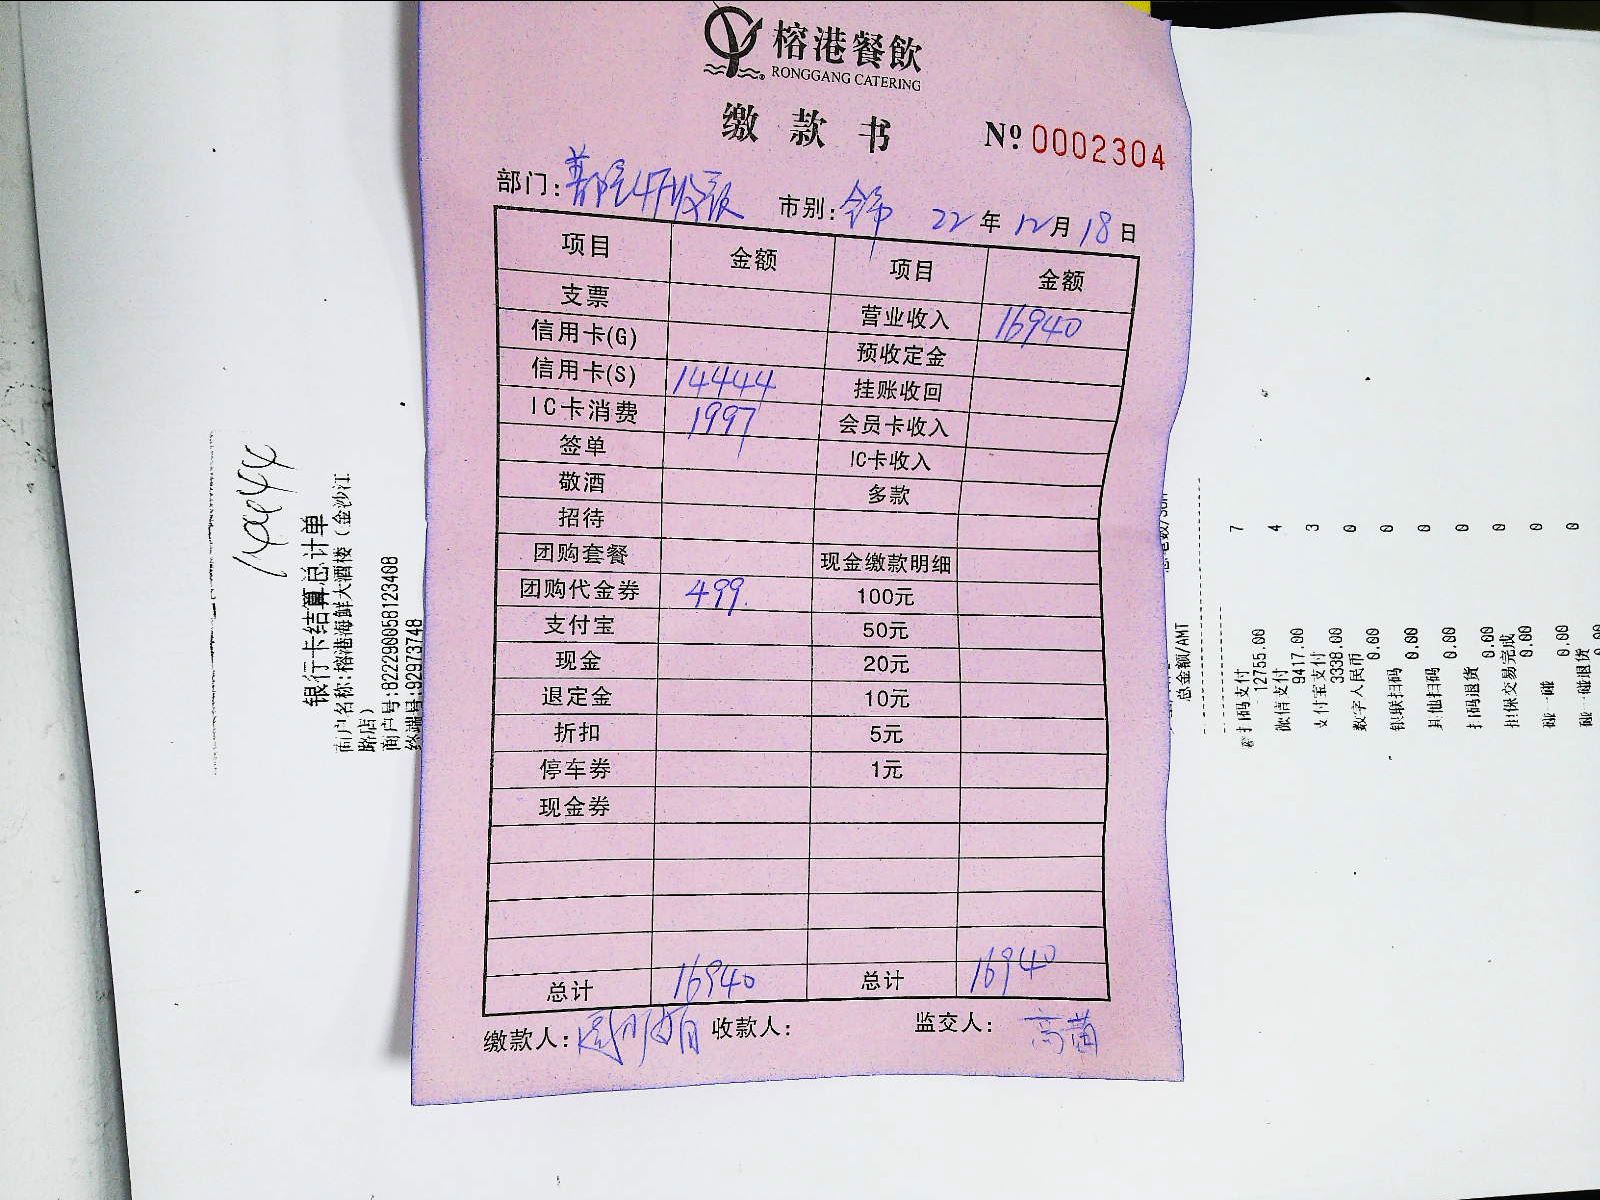 榕港餐飲
RONGGANG CATERING
缴款书 № 0002304
部门: 市别: 全市 22年12月18日
项目 金额 项目 金额
支票 营业收入 16940
信用卡(G) 预收定金
信用卡(S) 14444 挂账收回
IC卡消费 1997 会员卡收入
签单 IC卡收入
敬酒 多款
招待
团购套餐 现金缴款明细
团购代金券 499. 100元
支付宝 50元
现金 20元
退定金 10元
折扣 5元
停车券 1元
现金券
总计 16940 总计 16940
缴款人: 收款人: 监交人: 高茜
14444
银行卡结算总计单
商户名称:榕港海鲜大酒楼(金沙江
路店)
商户号:822290058123408
终端号:92973748
总金额/AMT
扫码支付 7
12755.00
微信支付 4
9417.00
支付宝支付 3
3338.00
数字人民币 0
0.00
银联扫码 0
0.00
其他扫码 0
0.00
扫码退货 0
0.00
担保交易完成 0
0.00
碰一碰 0
0.00
碰一碰退货 0